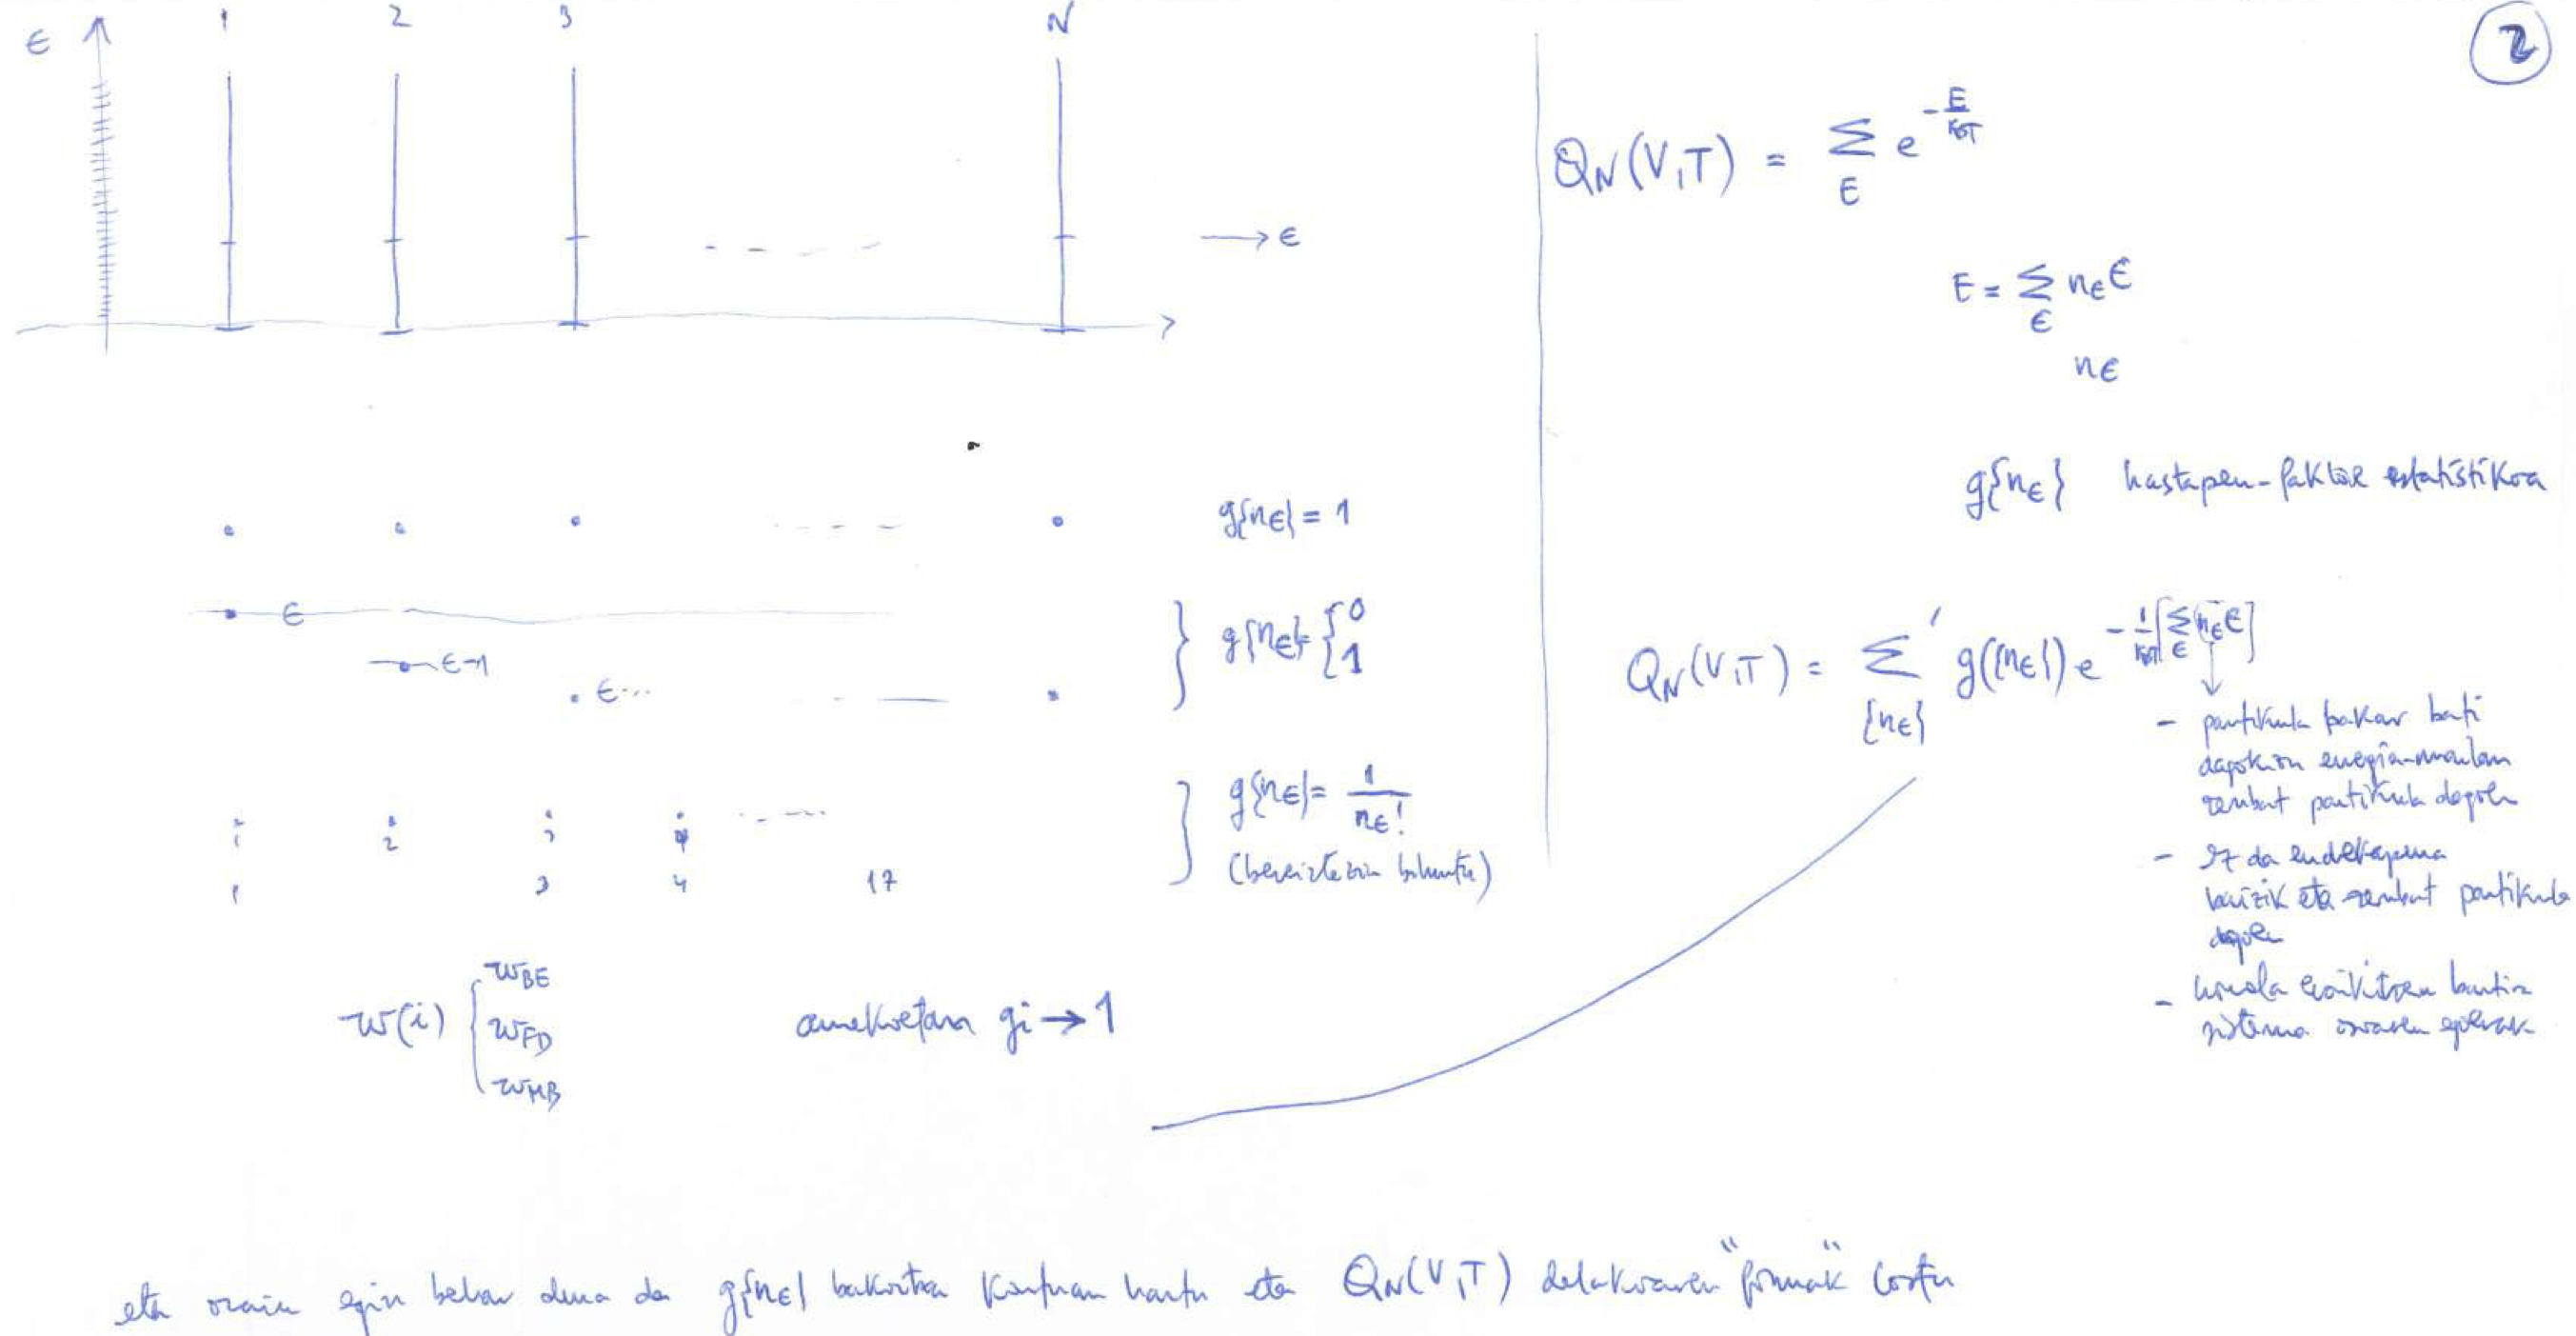 2
ϵ 1 2 3 N
→ ϵ
g{nϵ} = 1
ϵ
ϵ-1
ϵ...
} g{nϵ} = { 0 1
1 2 3 4
1 3 4 17
} g{nϵ} = 1/nϵ!
(bereiztezin bihurtu)
w(i) { wBE wFD wMB
anekoetan gi → 1
QN(V,T) = Σ_E e^{-E/kBT}
E = Σ_ϵ nϵ ϵ
nϵ
g{nϵ} hastapen-faktore estatistikoa
QN(V,T) = Σ'_{nϵ} g({nϵ}) e^{-1/kBT [Σ_ϵ nϵ ϵ]}
- partikula bakar bati
dagokion energia-mailan
zenbat partikula dagoen
- ez da endekapena
baizik eta zenbat partikula
dagoen
- honela eraikitzen baitira
sistema osoaren egoerak
eta orain egin behar dena da g{nϵ} bakoitza kontuan hartu eta QN(V,T) delakoaren "formak" lortu